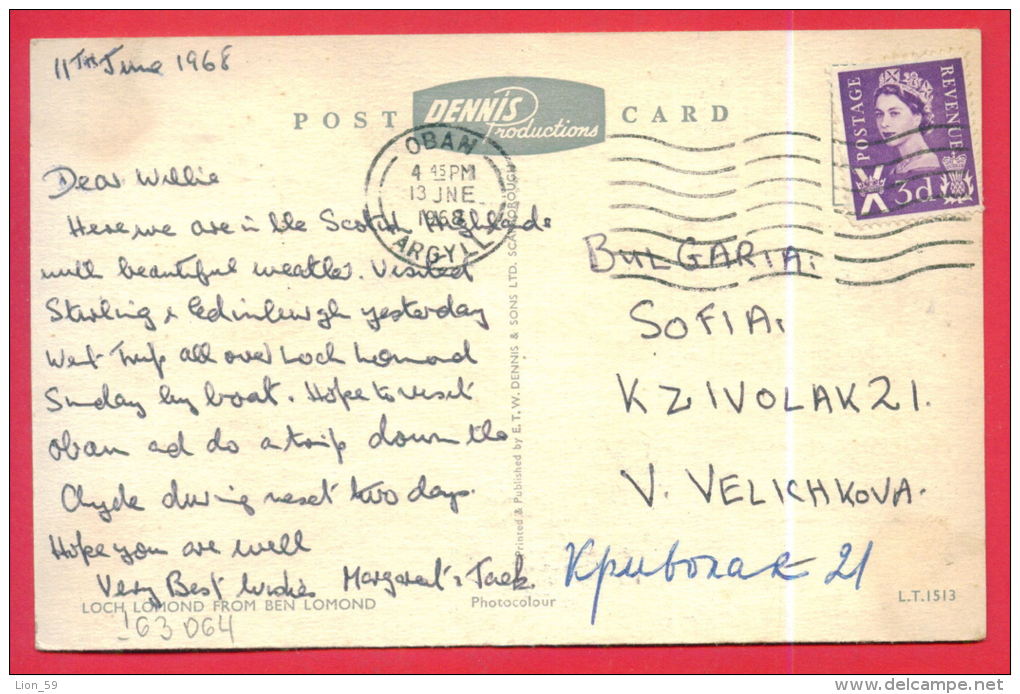 11TH June 1968
POST DENNIS Productions CARD
POSTAGE REVENUE
3d
OBAN
4 45 PM
13 JNE
1968
ARGYLL
Dear Willie
Here we are in the Scotish Highlands
with beautiful weather. Visited
Stirling & Edinburgh yesterday
Went Trip all over Loch Lomond
Sunday by boat. Hope to visit
Oban and do a trip down the
Clyde during next two days.
Hope you are well
Very Best Wishes Margaret & Jack
BULGARIA.
SOFIA.
KZIVOLAK 21.
V. VELICHKOVA.
Криволак 21
Printed & Published by E. T. W. DENNIS & SONS LTD. SCARBOROUGH
LOCH LOMOND FROM BEN LOMOND
Photocolour
L.T.1513
163 064
Lion_59
www.delcampe.net